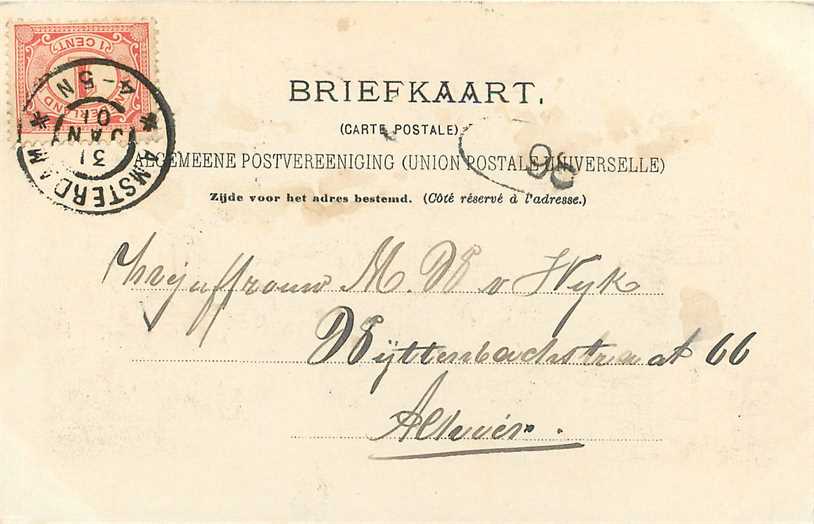 1 CENT
NEDERLAND
AMSTERDAM
31 JAN 01
A-5 N
BRIEFKAART.
(CARTE POSTALE)
ALGEMEENE POSTVEREENIGING (UNION POSTALE UNIVERSELLE)
96
Zijde voor het adres bestemd. (Côté réservé à l'adresse.)
Mejuffrouw M. W v Wyk
Wÿttenbachstraat 66
Alhier.